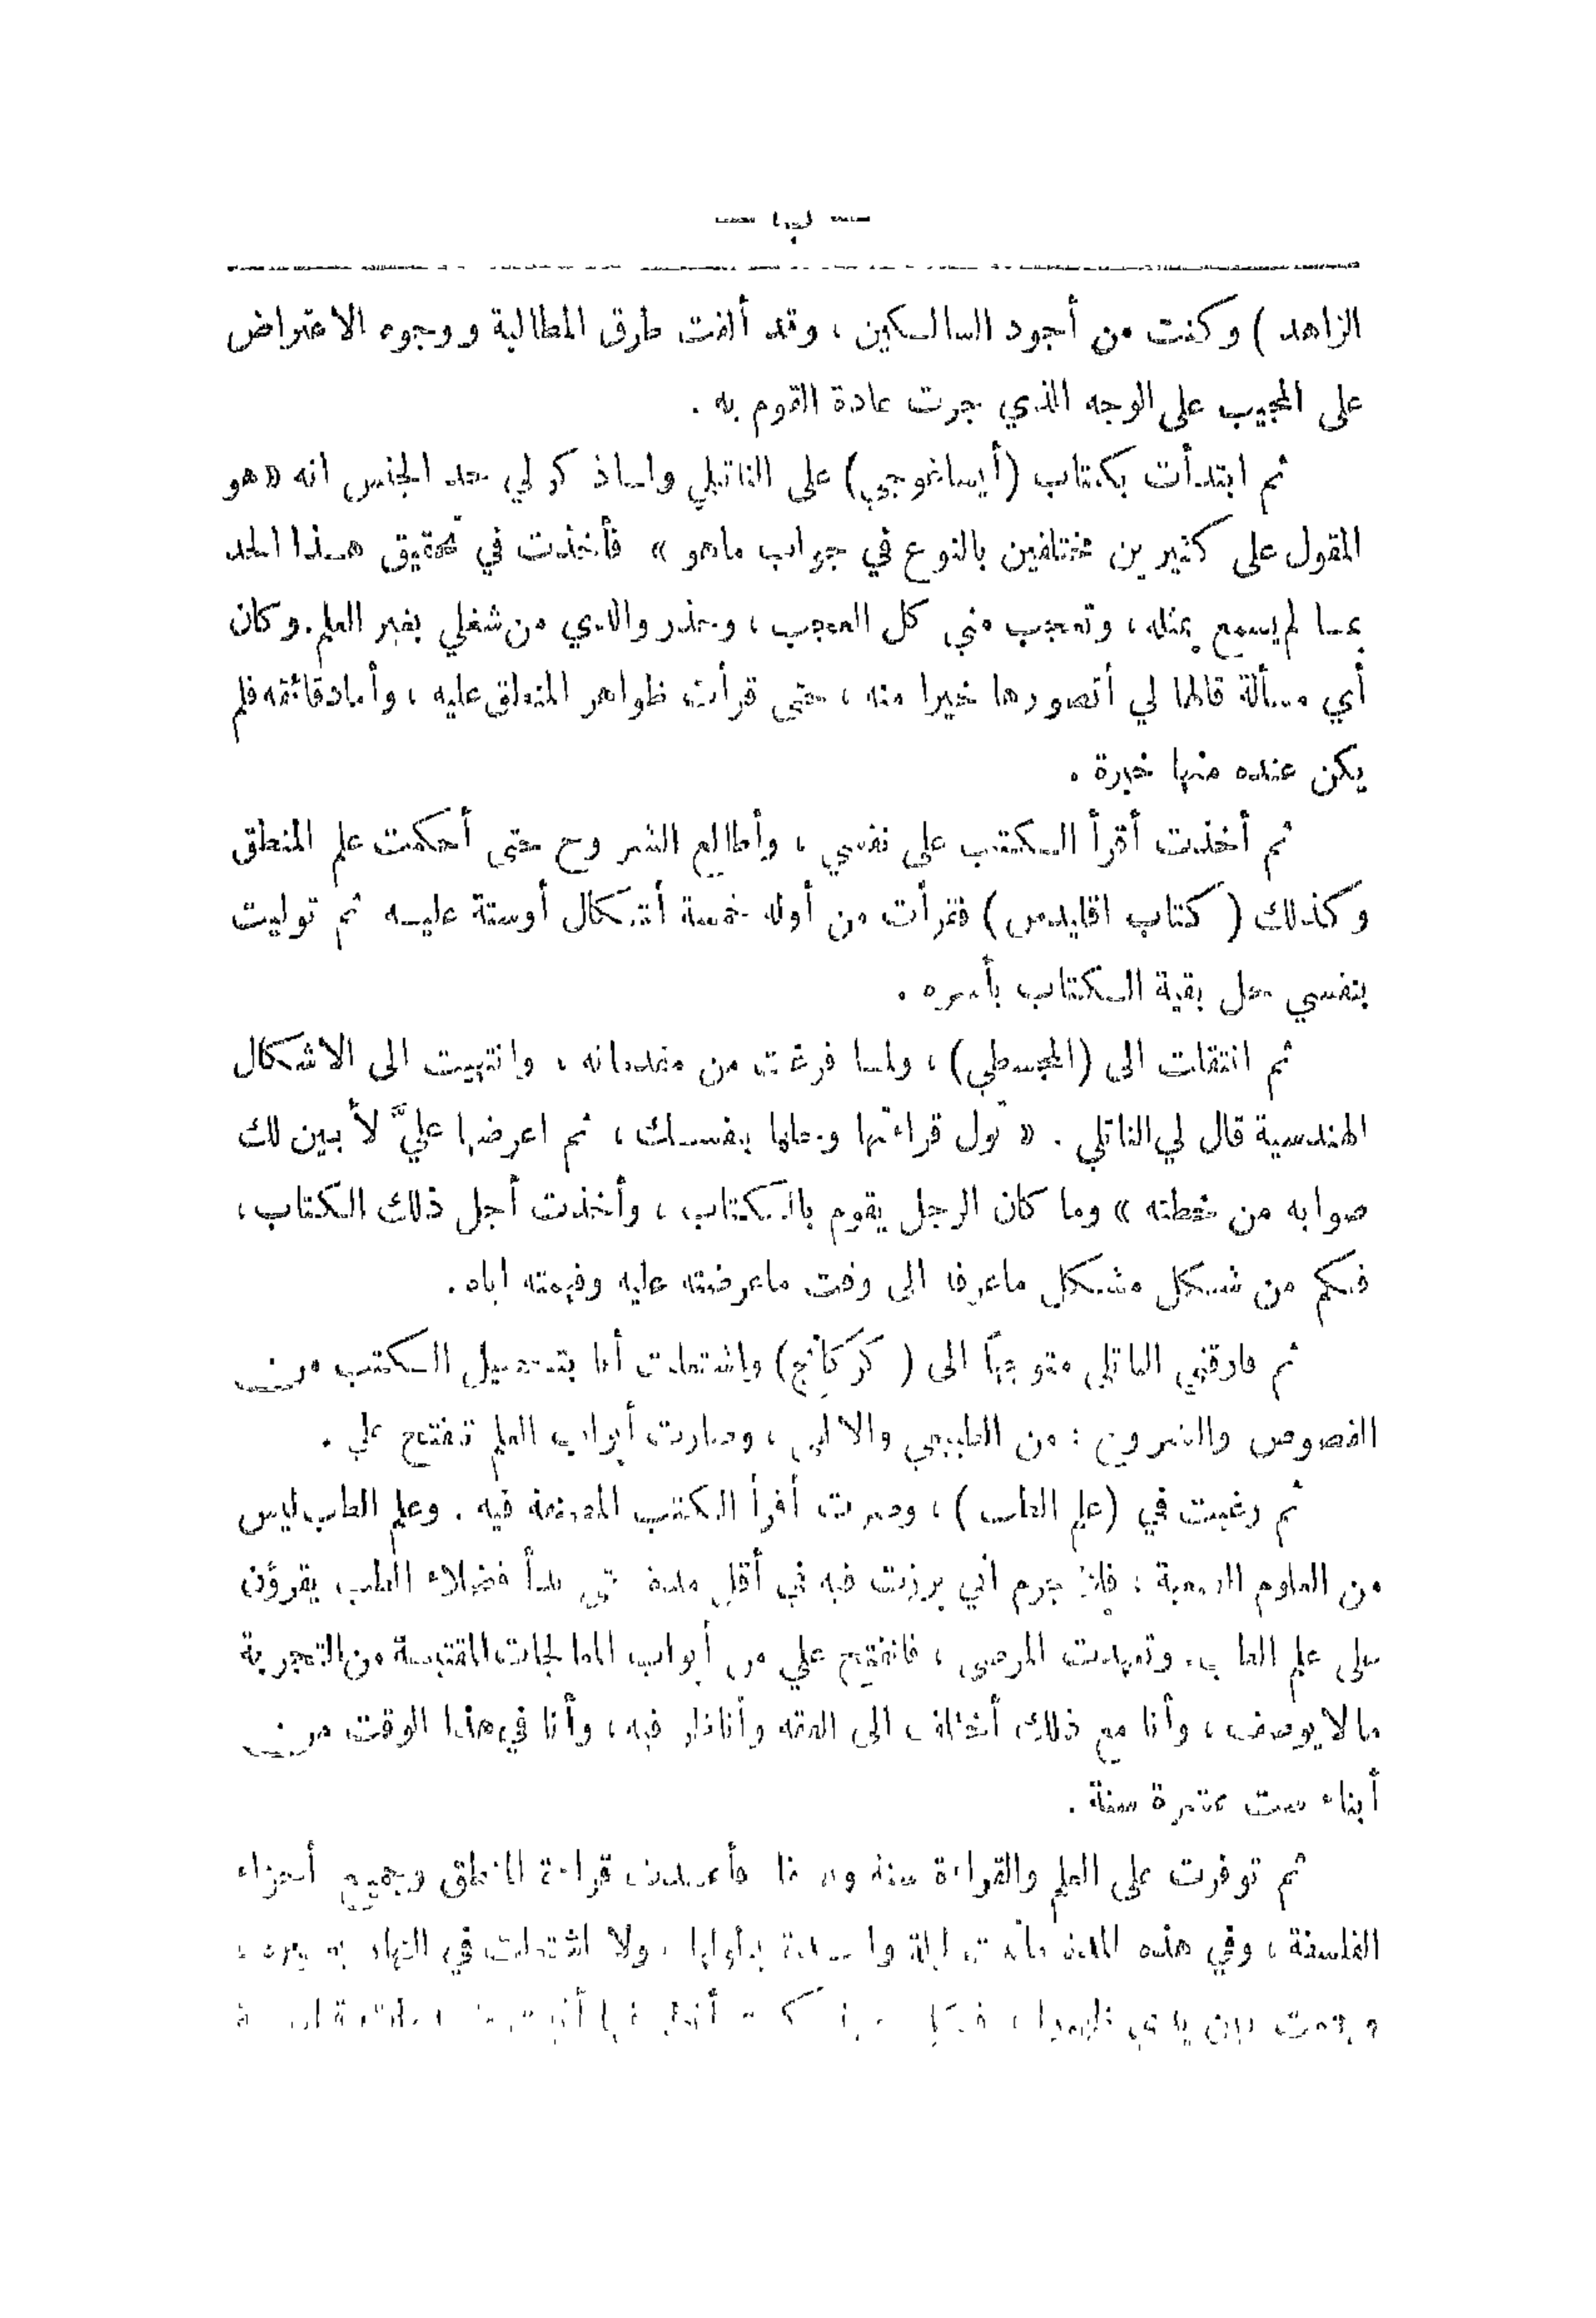 الزاهد) وكنت من أجود السالكين ، وقد ألفت طرق المطالبة ووجوه الاعتراض
على المجيب على الوجه الذي جرت عادة القوم به .
ثم ابتدأت بكتاب (أيساغوجي) على الناتلي ولما ذكر لي حد الجنس انه «هو
المقول على كثيرين مختلفين بالنوع في جواب ماهو» فأخذت في تحقيق هذا الحد
بما لم يسمع بمثله ، وتعجب مني كل العجب ، وحذر والدي من شغلي بغير العلم . وكان
أي مسألة قالها لي أتصورها خيرا منه ، حتى قرأت ظواهر المنطق عليه ، وأما دقائقه فلم
يكن عنده منها خبرة .
ثم أخذت أقرأ الكتب على نفسي ، وأطالع الشروح حتى أحكمت علم المنطق
وكذلك (كتاب اقليدس) فقرأت من أوله خمسة أشكال أوستة عليه ثم توليت
بنفسي حل بقية الكتاب بأسره .
ثم انتقلت الى (المجسطي) ، ولما فرغت من مقدماته ، وانتهيت الى الاشكال
الهندسية قال لي الناتلي . « تول قراءتها وحلها بنفسك ، ثم اعرضها عليَّ لأبين لك
صوابه من خطئه » وما كان الرجل يقوم بالكتاب ، وأخذت أحل ذلك الكتاب ،
فكم من شكل مشكل ماعرفه الى وقت ماعرضته عليه وفهمته اياه .
ثم فارقني الناتلي متوجهاً الى (كركانج) واشتغلت أنا بتحصيل الكتب من
الفصوص والشروح : من الطبيعي والالهي ، وصارت أبواب العلم تنفتح علي .
ثم رغبت في (علم الطب) ، وصرت أقرأ الكتب المصنفة فيه . وعلم الطب ليس
من العلوم الصعبة ، فلا جرم اني برزت فيه في أقل مدة حتى بدأ فضلاء الطب يقرؤن
على علم الطب ، وتعهدت المرضى ، فانفتح علي من أبواب المعالجات المقتبسة من التجربة
مالا يوصف ، وأنا مع ذلك أختلف الى الفقه وأناظر فيه ، وأنا في هذا الوقت من
أبناء ست عشرة سنة .
ثم توفرت على العلم والقراءة سنة ونصفا فأعدت قراءة المنطق وجميع أجزاء
الفلسفة ، وفي هذه المدة مانمت ليلة واحدة بطولها ، ولا اشتغلت في النهار بغيره ،
وجمعت بين يدي ظهورا ،